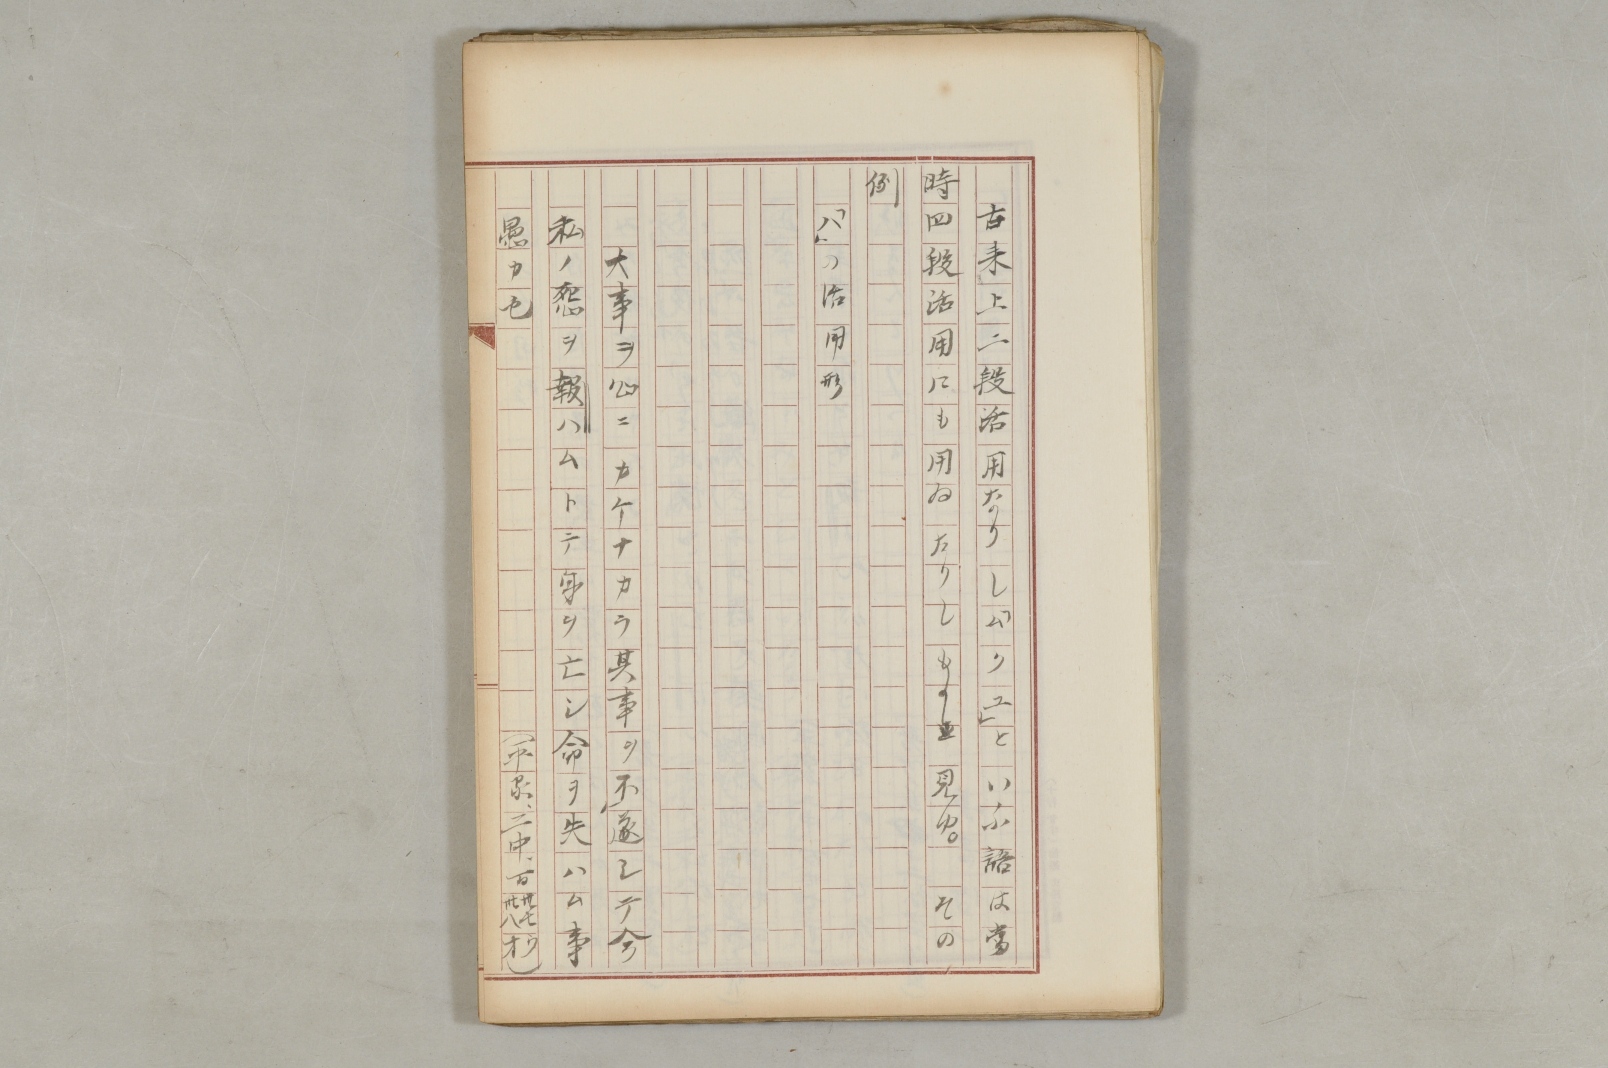 古来上二段活用なりし「ムクユ」といふ語は當
時四段活用にも用ゐたりしもの見ゆ。その
例
「ハ」の活用形
大事ヲ心ニカケナカラ其事ヲ不遂シテ今
私ノ怨ヲ報ハムトテ身ヲ亡シ命ヲ失ハム事
愚カ也
(平家、二中、百卅七ウ卅八オ)